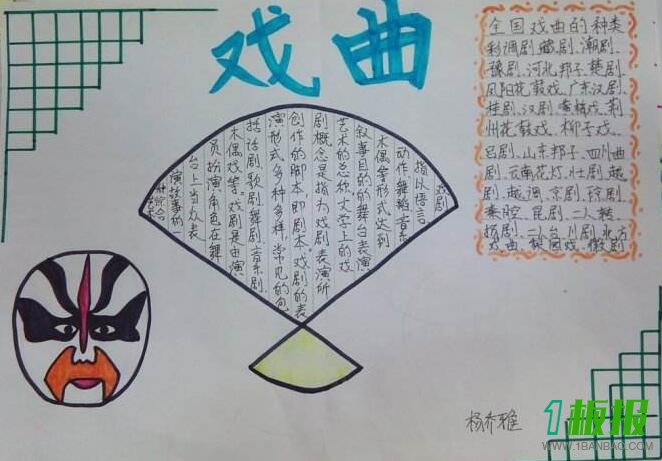 戏曲
戏剧
指以语言.
动作.舞蹈.音乐.
木偶等形式达到
叙事目的的舞台表演
艺术的总称.文学上的戏
剧概念是指为戏剧表演所
创作的脚本即剧本.戏剧的表
演形式多种多样,常见的包
括话剧.歌剧.舞剧.音乐剧.
木偶戏等.戏剧是由演
员扮演角色在舞
台上当众表
演故事的
种综合
全国戏曲的种类
彩调剧.藏剧.潮剧.
豫剧.河北邦子.楚剧.
凤阳花鼓戏.广东汉剧.
桂剧.汉剧.黄梅戏.荆
州花鼓戏.柳子戏.
吕剧.山东邦子.四川曲
剧.云南花灯.壮剧.越
剧.越调.京剧.评剧.
秦腔.昆剧.二人转.
扬剧.二人台.川剧.北方
戏曲.梨园戏.徽剧
杨乔雅
1板报
WWW.1BANBAO.COM